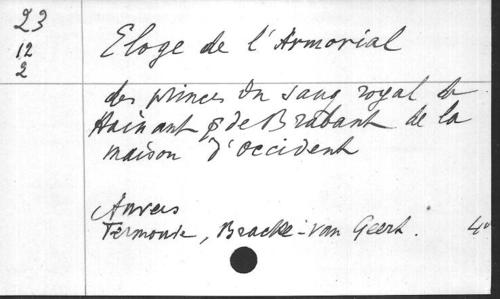 23
12
2
Eloge de l'Armorial
des princes du sang royal de
Hainaut & de Brabant de la
maison d'Occident
Anvers
Termonde, Bracke-van Geert. 4°